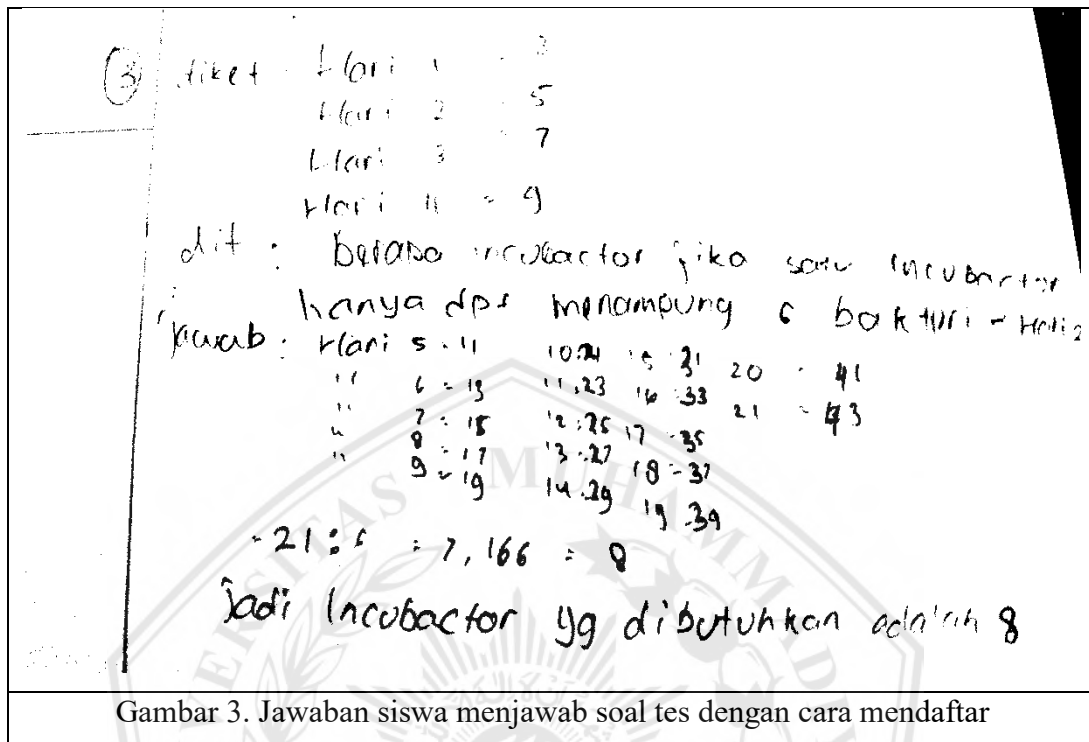 3 diket Hari 1 = 3
Hari 2 = 5
Hari 3 = 7
Hari 4 = 9
dit : berapa incubactor jika satu incubactor
hanya dpt menampung 6 bakteri - Hari 2
jawab : Hari 5 = 11 10 = 21 15 = 31 20 = 41
" 6 = 13 11 = 23 16 = 33 21 = 43
" 7 = 15 12 = 25 17 = 35
" 8 = 17 13 = 27 18 = 37
" 9 = 19 14 = 29 19 = 39
21 : 6 = 7,166 = 8
Jadi Incubactor yg dibutuhkan adalah 8
Gambar 3. Jawaban siswa menjawab soal tes dengan cara mendaftar